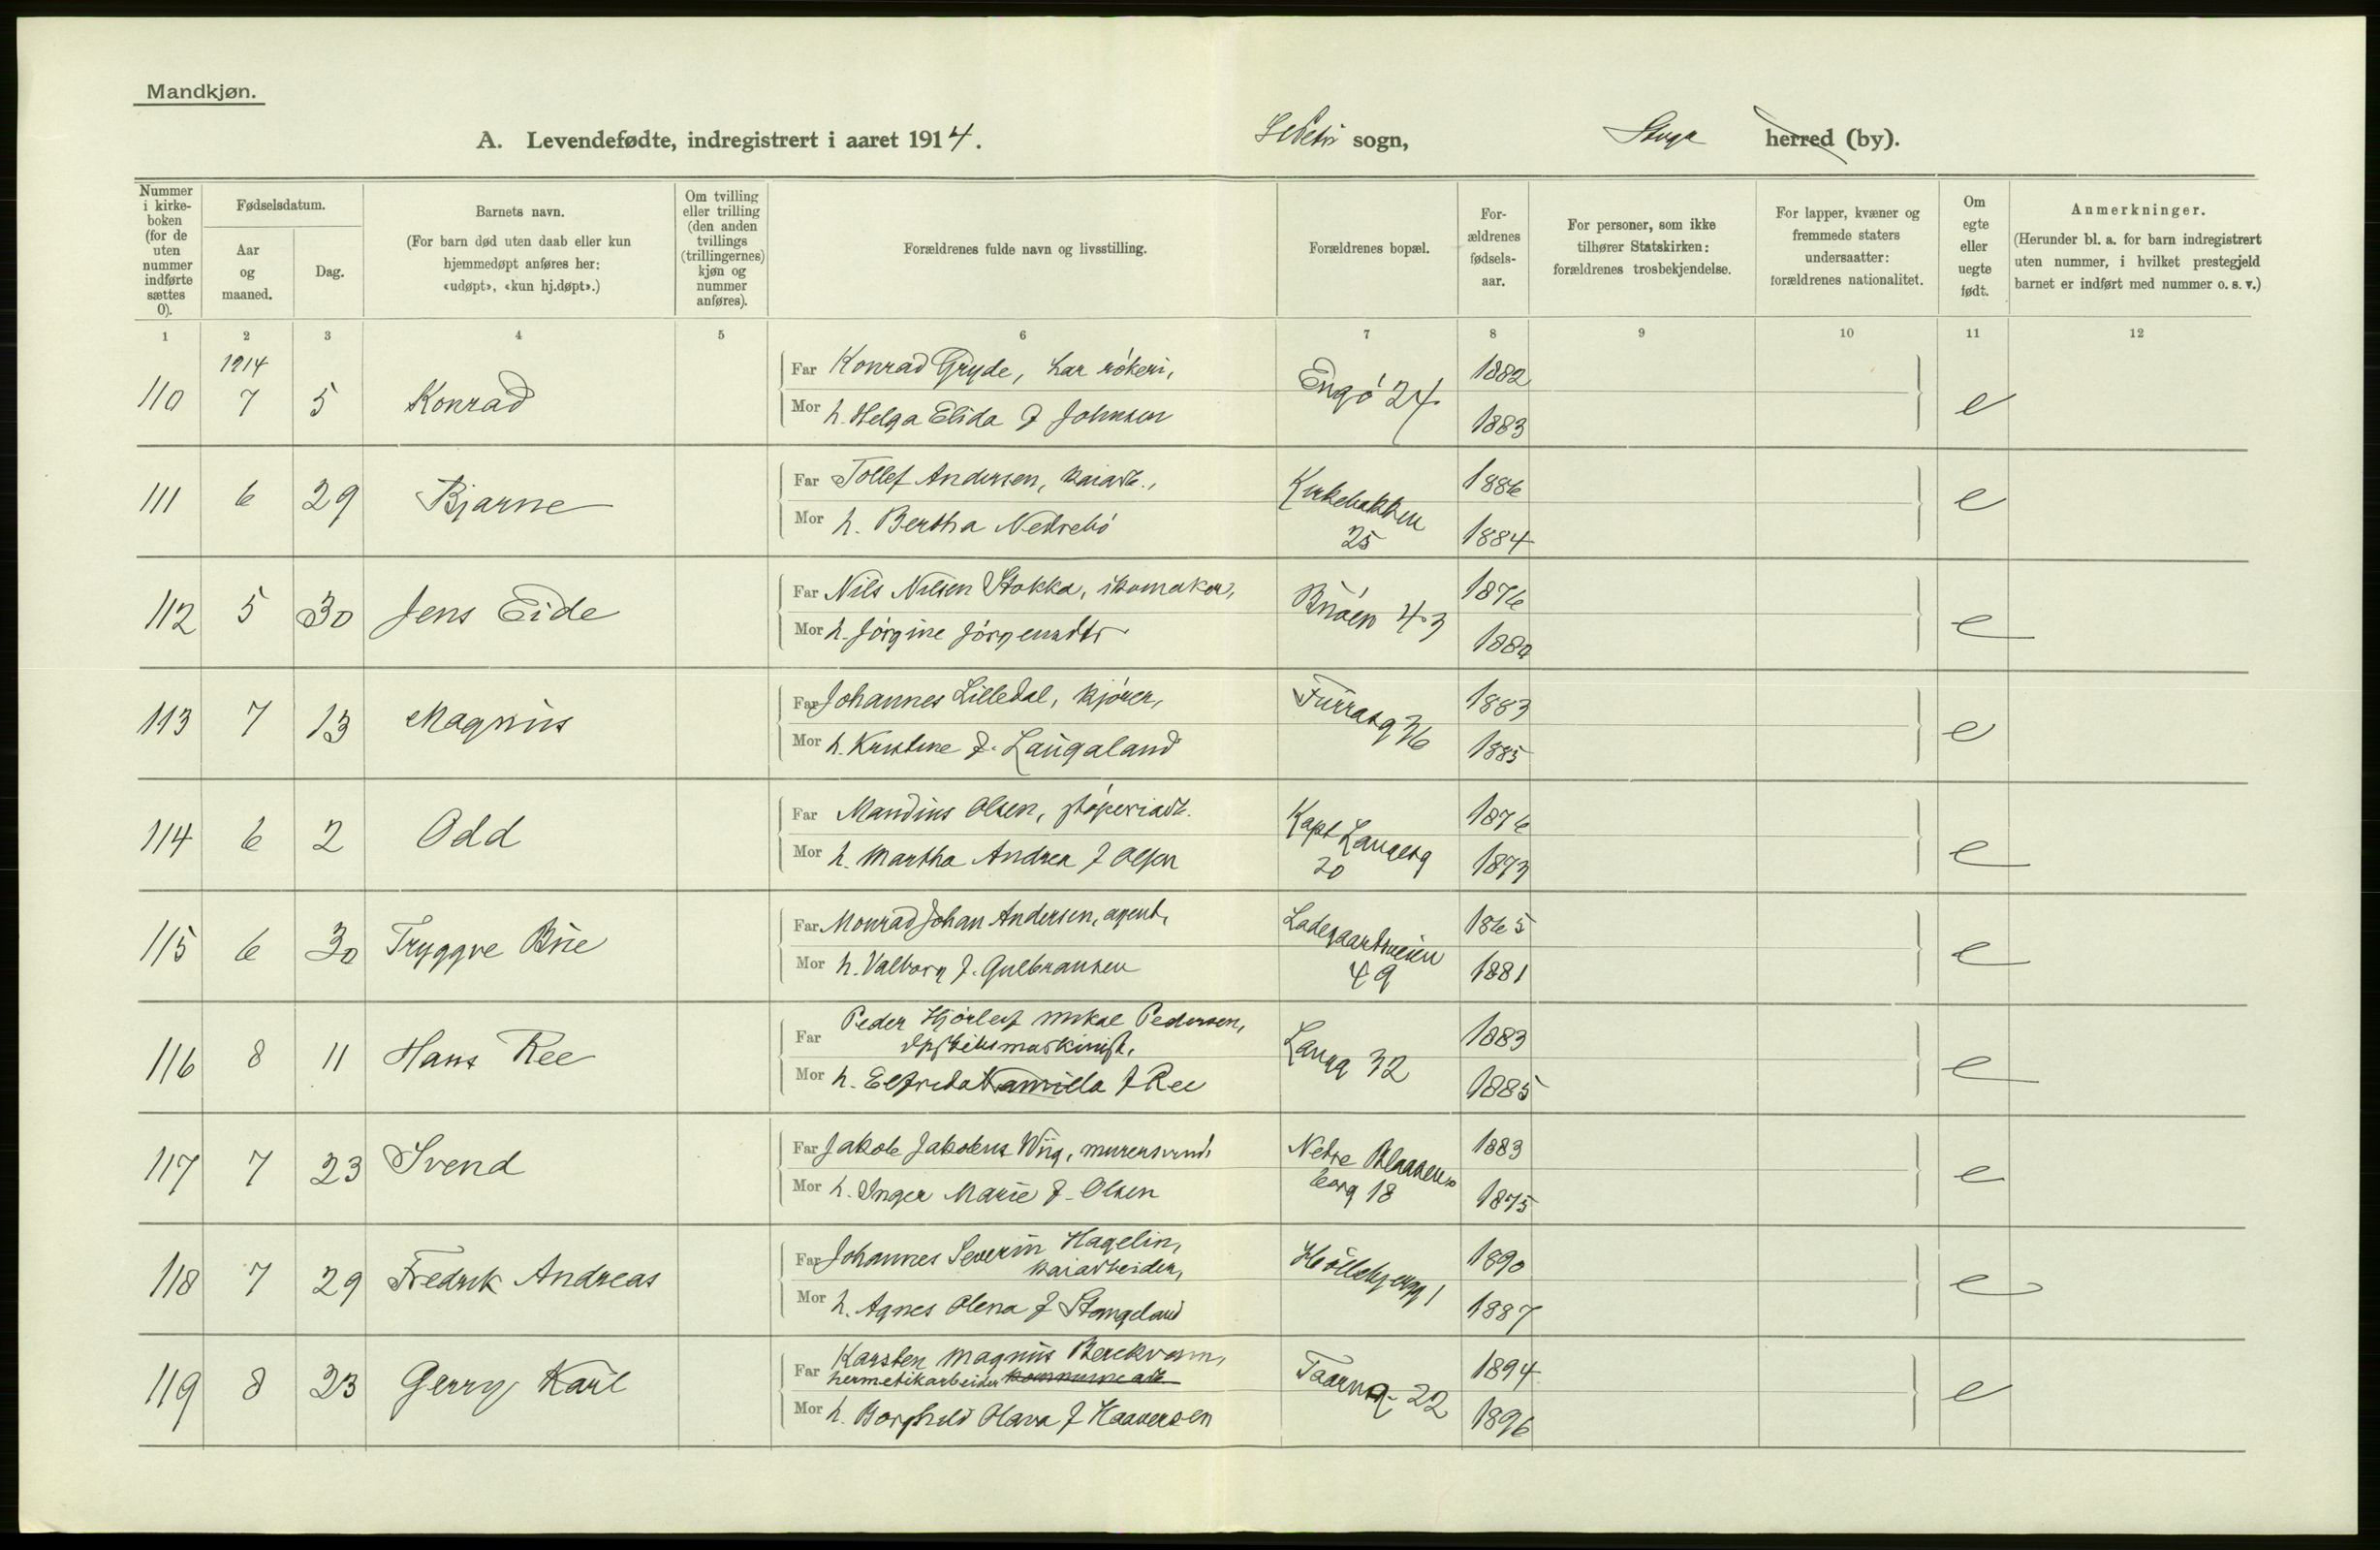 Mandkjøn.
A. Levendefødte, indregistrert i aaret 1914. sogn, herred (by).
Nummer i kirkeboken (for de uten nummer indførte sættes 0).
Fødselsdatum.
Aar og maaned.
Dag.
Barnets navn.
(For barn død uten daab eller kun hjemmedøpt anføres her: «udøpt», «kun hj.døpt».)
Om tvilling eller trilling (den anden tvillings (trillingernes) kjøn og nummer anføres).
Forældrenes fulde navn og livsstilling.
Forældrenes bopæl.
Forældrenes fødselsaar.
For personer, som ikke tilhører Statskirken: forældrenes trosbekjendelse.
For lapper, kvæner og fremmede staters undersaatter: forældrenes nationalitet.
Om egte eller uegte født.
Anmerkninger.
(Herunder bl. a. for barn indregistrert uten nummer, i hvilket prestegjeld barnet er indført med nummer o. s. v.)
1 2 3 4 5 6 7 8 9 10 11 12
1914
110 7 5 Konrad
Far Konrad Gryde, har røkeri,
Mor h. Helga Elida f Johnsen
Engø 24
1882
1883
e
111 6 29 Bjarne
Far Tollef Andersen, kaiarb.,
Mor h. Bertha Nedrebø
Kirkebakken
25
1886
1884
e
112 5 30 Jens Eide
Far Nils Nilsen Stokka, skomaker,
Mor h. Jørgine Jørgensdtr
43
1876
1880
e
113 7 13 Magnus
Far Johannes Lilledal, kjører,
Mor h. Kristine f. Laugaland
Furrasg 36
1883
1885
e
114 6 2 Odd
Far Mandius Olsen, støperiarb.
Mor h. Martha Andrea f Olsen
Kapt Langesg
20
1876
1873
e
115 6 30 Tryggve Brie
Far Monrad Johan Andersen, agent,
Mor h. Valborg f. Gulbransen
Ladegaardsveien
49
1865
1881
e
116 8 11 Hans Ree
Far Peder Hjørlef Mikal Pedersen,
dpskibsmaskinist,
Mor h. Elfrida Kamilla f Ree
Langg 32
1883
1885
e
117 7 23 Svend
Far Jakob Jakobsen Wiig, murersvend,
Mor h. Inger Marie f. Olsen
Nedre Blaasen
borg 18
1883
1875
e
118 7 29 Fredrik Andreas
Far Johannes Severin Hagelin,
kaiarbeider,
Mor h. Agnes Olena f Stangeland
1
1890
1887
e
119 8 23 Gerry Karl
Far Karsten Magnus Berekvam,
hermetikarbeider kommunearb
Mor h. Borghild Olava f Haaversen
Taarng. 22
1894
1896
e